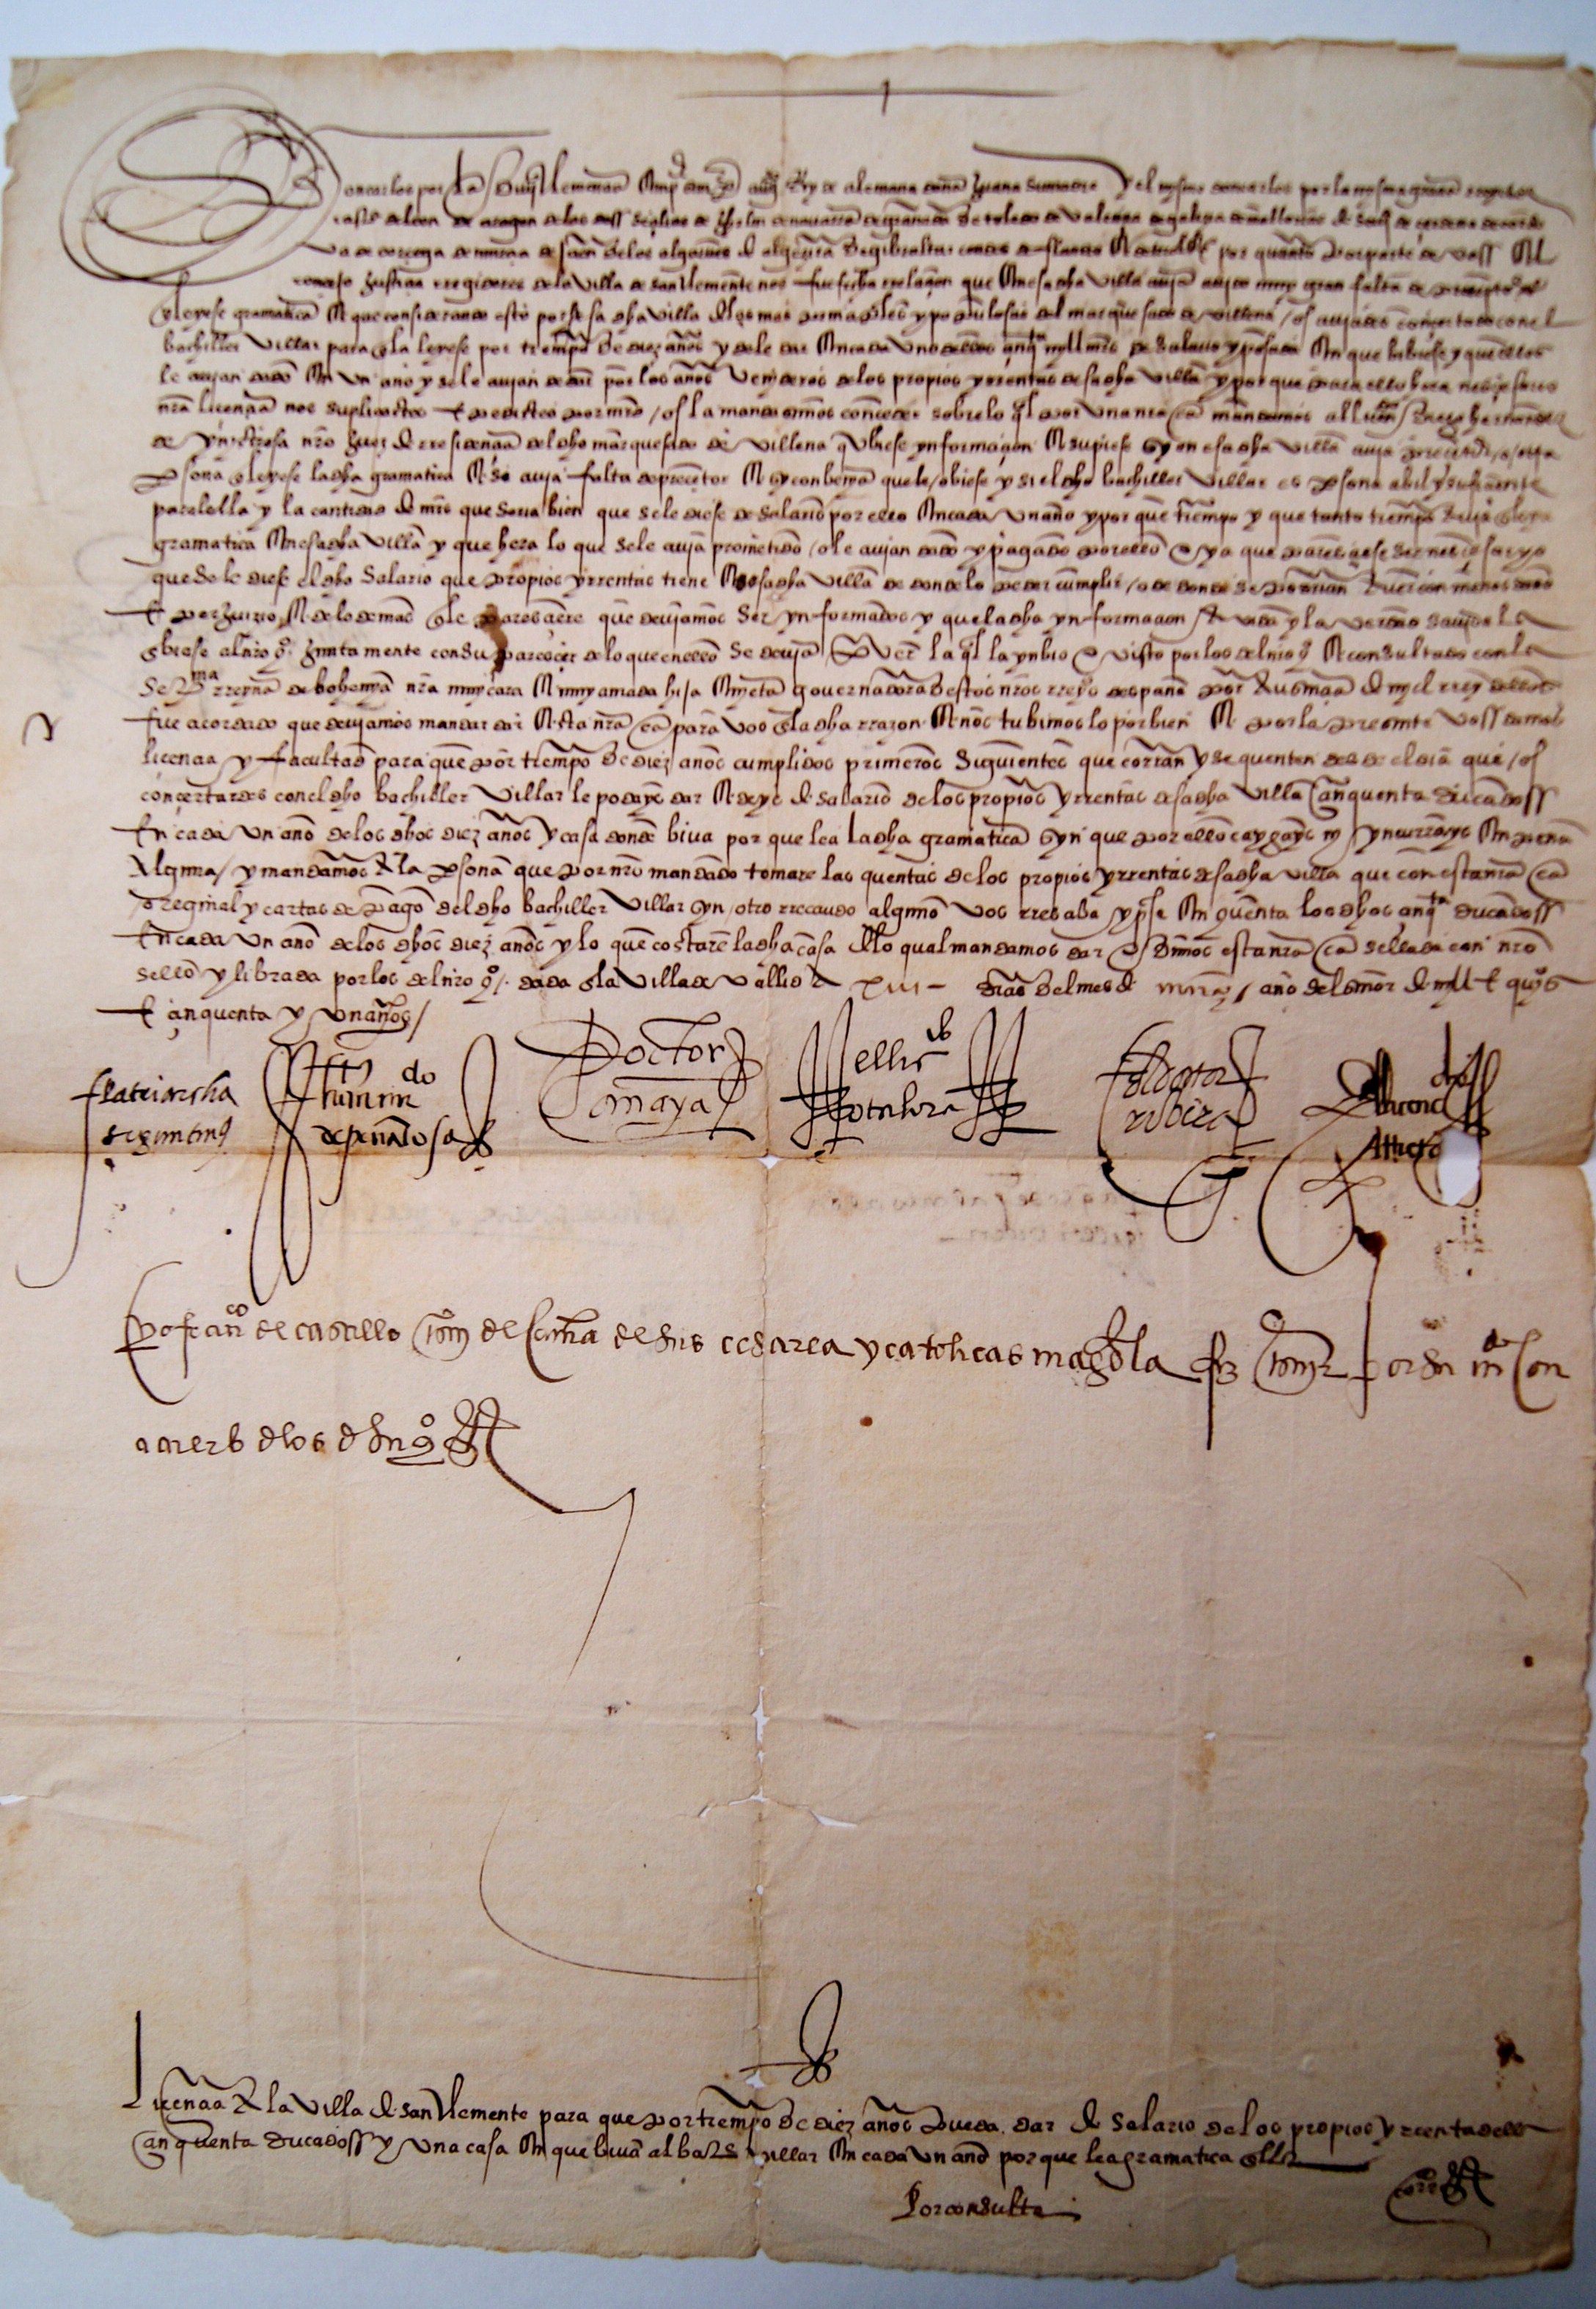 Don carlos por la divina clemençia emperador semper augusto Rey de alemana doña Juana su madre y el mismo don carlos por la misma graçia reyes de
castilla de leon de aragon de las dos seçilias de jherusalen de navarra de granada de toledo de valençia de galizia de mallorcas de sevilla de çerdeña de cordo
va de corçega de murçia de jaen de los algarves de algezira de gibraltar condes de flandes e tirol etc por quanto por parte de vos el
conçejo justiçia rregidores de la villa de san clemente nos fue fecha rrelaçion que en esa dha villa avia avido muy gran falta de preçeptor que
leyese gramatica e que considerando esto por ser esa dha villa de las mas prinçipales y populosas del marquesado de villena / os aviades conçertado con el
bachiller villar para que la leyese por tiempo de diez años y de le dar en cada uno dellos çinqta mill mrs de salario y posada en que bibiese y que estos
le avian dado en un año y se le avian de dar por los años venideros de los propios y rrentas desa dha villa y por que para ello hera neçesario
nra liçençia nos suplicastes e pedistes por mrd / os la mandasemos conçeder sobre lo ql por una nra ca mandamos al liçendo hernandez
de ynestrosa nro juez de rresidençia del dho marquesado de villena q ubiese ynformaçion e supiese sy en esa dha villa avia preçeptor / o otra
psona q leyese la dha gramatica e si avia falta de preçetor e sy conbenya que le / obiese y si el dho bachiller villar es psona abil y sufiçiente
para lello y la cantidad de mrs que seria bien que se le diese de salario por ello en cada un año y por que tiempo y que tanto tiempo avia q leya
gramatica en esa dha villa y que hera lo que se le avia prometido / o le avian dado y pagado por ello e ya que paresçiese ser nesçesaryo
que se le diese el dho salario que propios y rrentas tiene esa dha villa de donde lo poder cumplir / o de donde se podrian aver con menos daño
e perjuizio e de lo demas q le paresçiere que deviamos ser ynformados y que la dha ynformaçion avida y la verdad savida la
enbiase al nro qo juntamente con su paresçer de lo que en ello se devia prover la ql la ynbio e visto por los del nro qo e consultado con la
serma rreyna de bohemya nra muy cara e muy amada hija e nieta governadora destos nros rreynos despaña por ausençia de my el rrey dellos
fue acordado que deviamos mandar dar esta nra ca para vos en la dha rrazon e nos tubimoslo por bien e por la presente vos damos
liçençia y facultad para que por tiempo de diez años cumplidos primeros siguientes que corran y se quenten desde el dia que / os
conçertardes con el dho bachiller villar le podays dar e deys de salario de los propios y rrentas desa dha villa çinquenta ducados
en cada un año de los dhos diez años y casa donde biva por que lea la dha gramatica syn que por ello caygays ni yncurrays en pena
alguna / y mandamos a la psona que por nro mandado tomare las quentas de los propios y rrentas desa dha villa que con esta nra ca
oreginal y cartas de pago del dho bachiller villar syn / otro rrecaudo alguno vos rresçiba y pase en quenta los dhos çinqta ducados
en cada un año de los dhos diez años y lo que costare la dha casa de lo qual mandamos dar e dimos esta nra ca sellada con nro
sello y librada por los del nro qo / dada en la villa de vallid a XIII dias del mes de março / año del señor de mill e quios
e çinquenta y un años /
patriarcha
seguntinus
fernan do
de peñalosa
Doctor
anaya
el licdo
otalora
el doctor
ribera
yo franco de castillo de camara de sus cesarea y catholicas magdes la fiz por su mdo con
acuerdo de los de su qo
Liçençia a la villa de san clemente para que por tiempo de diez años pueda dar de salario de los propios y rrentas della
çinquenta ducados y una casa en que biva al bachiller villar en cada un año por que lea gramatica en ella
Por consulta